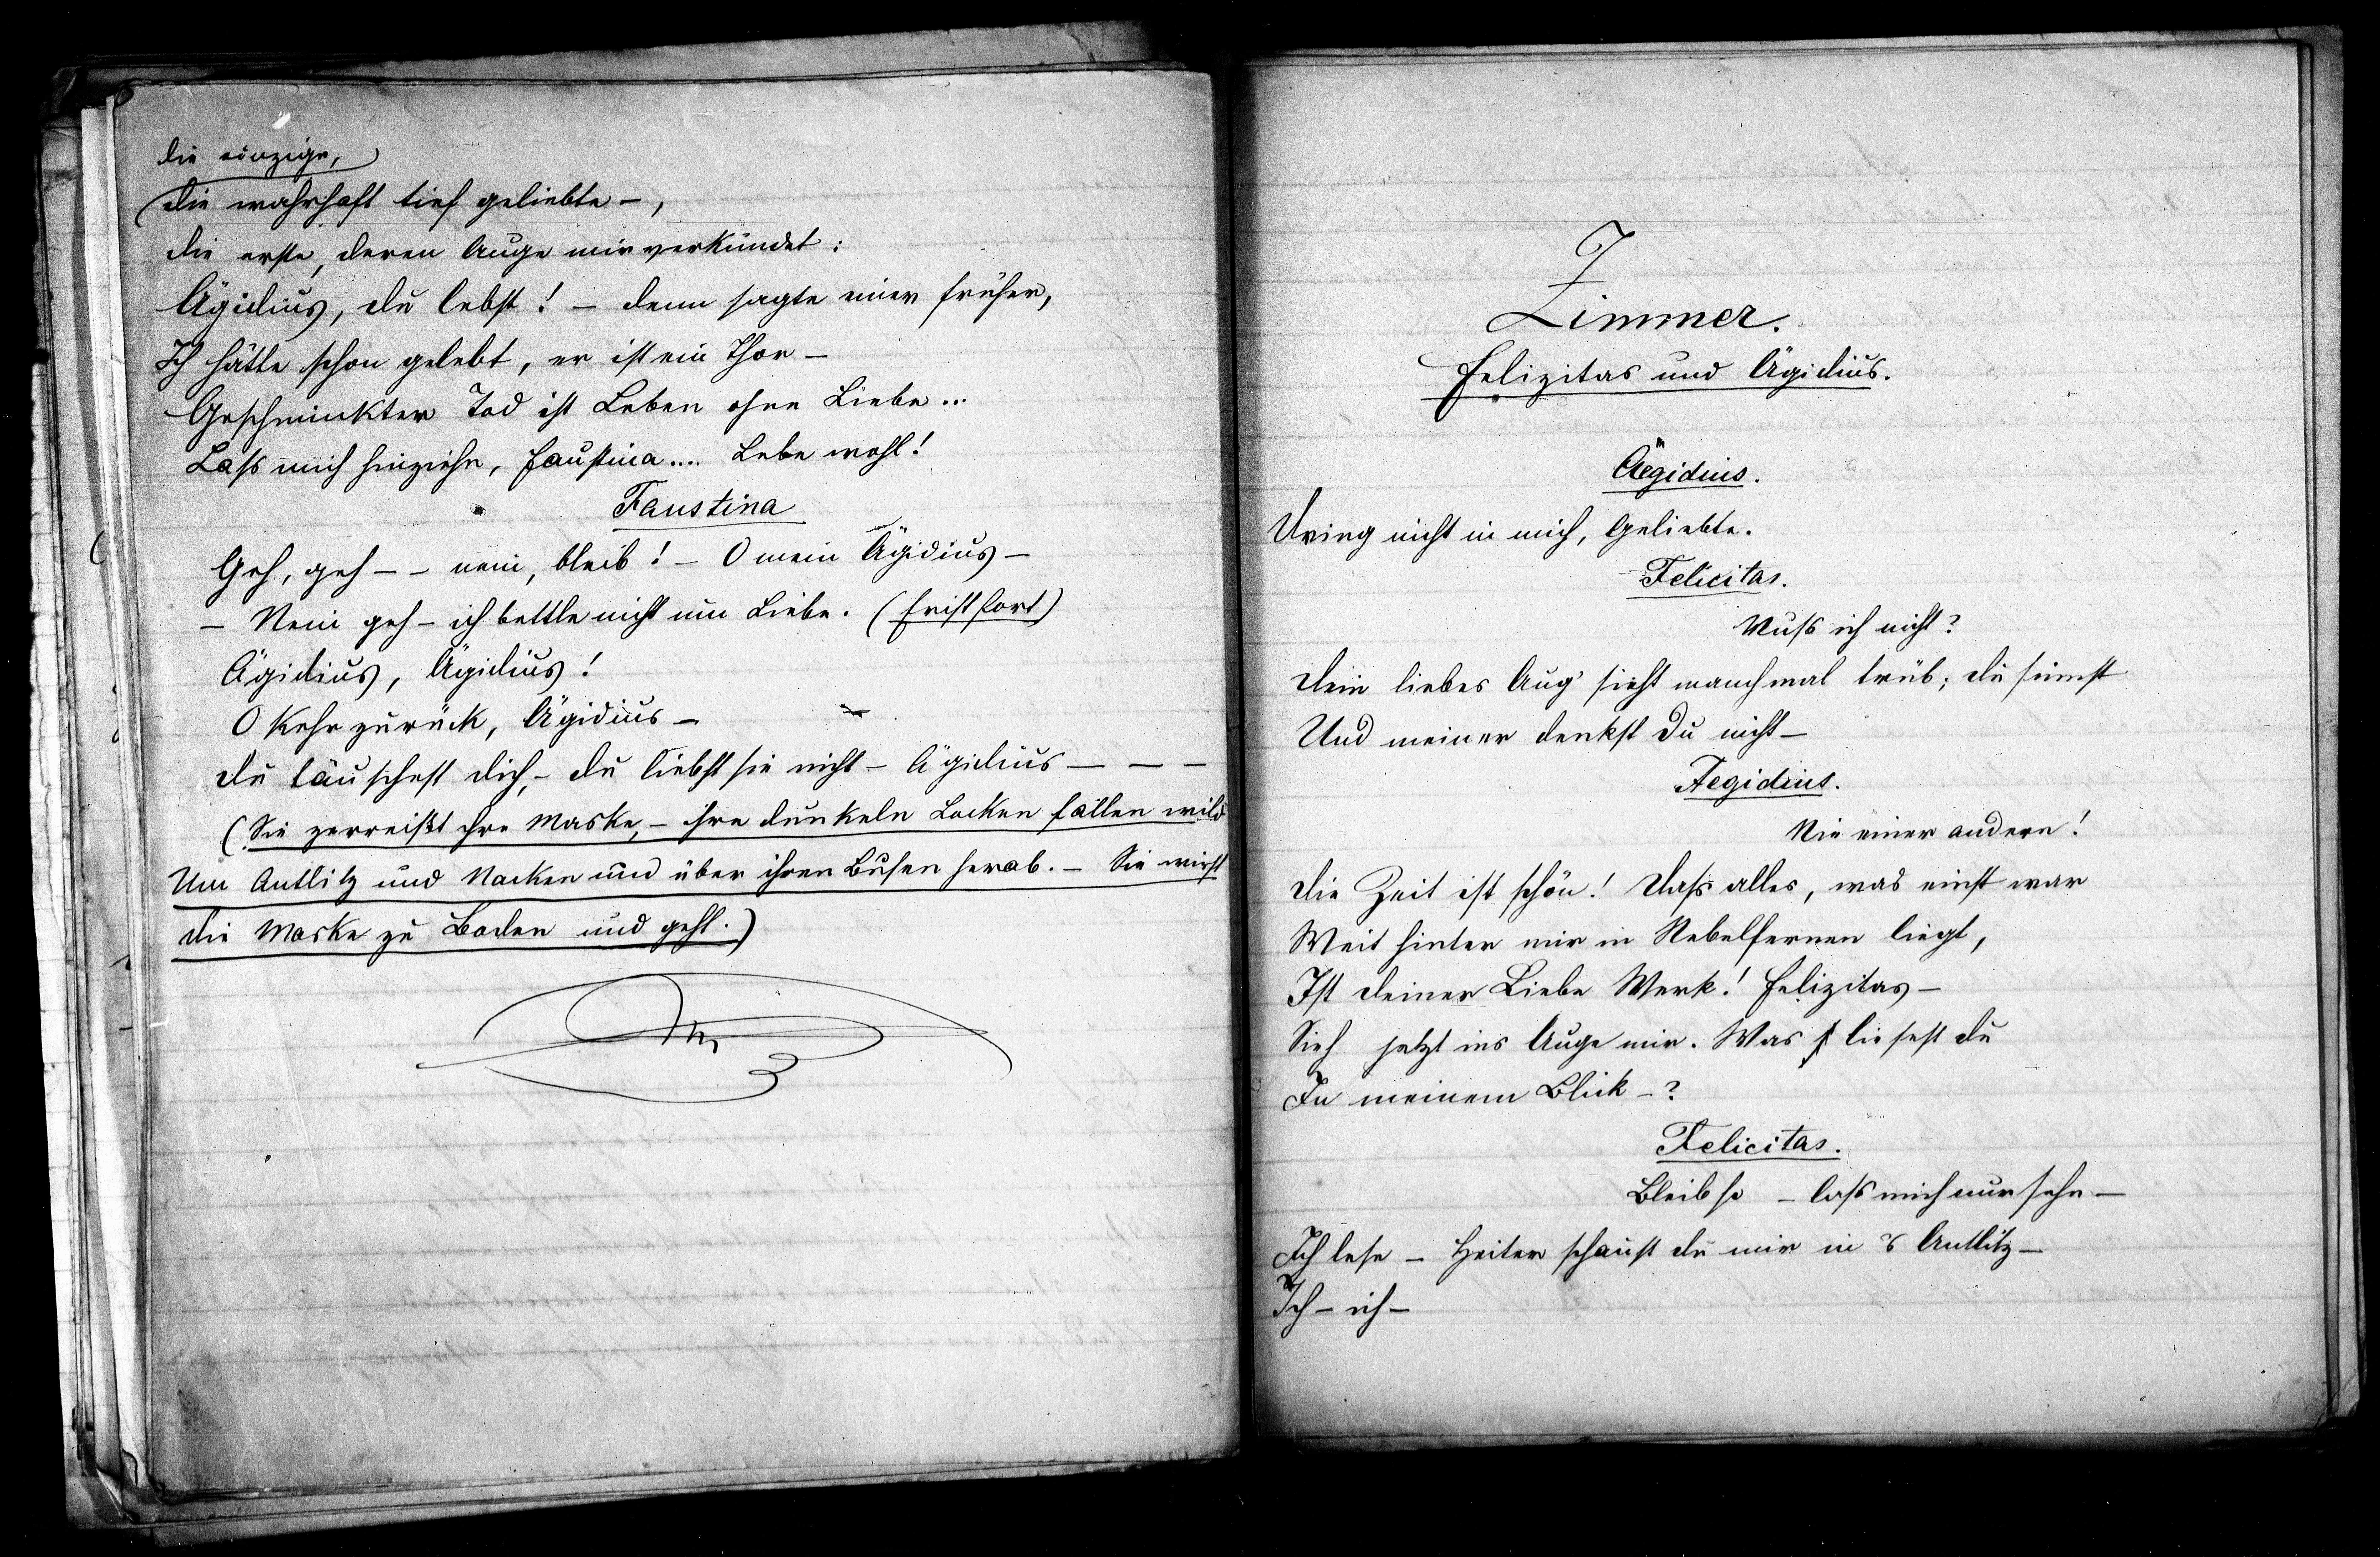 die einzige,
die wahrhaft tief geliebte –,
die erste, deren Auge mir verkündet:
Ägidius, du lebst! – denn sagte einer früher,
Ich hätte schon gelebt, er ist ein Thor –
Geschminkter Tod ist Leben ohne Liebe ...
Lass mich hinziehn, Faustina .... Lebe wohl!
Faustina
Geh, geh – – nein, bleib! – O mein Ägidius –
– Nein geh – ich bettle nicht um Liebe. (Er ist fort)
Ägidius, Ägidius!
O kehr zurück, Ägidius –
du täuschest dich, – du liebst sie nicht – Ägidius – – –
(Sie zerreißt ihre Maske, – ihre dunkeln Locken fallen wild
Um Antlitz und Nacken und über ihren Busen herab. – Sie wirft
die Maske zu Boden und geht.)
Zimmer.
Felizitas und Ägidius.
Aegidius.
Dring nicht in mich, Geliebte.
Felicitas.
Muss ich nicht?
Dein liebes Aug' sieht manchmal trüb; du sinnst
Und meiner denkst du nicht –
Aegidius.
Nie einer andern!
Die Zeit ist schön! Dass alles, was einst war
Weit hinter mir in Nebelfernen liegt,
Ist deiner Liebe Werk! Felizitas –
Sieh jetzt ins Auge mir. Was liesest du
In meinem Blick –?
Felicitas.
Bleib so – lass mich nur sehn –
Ich lese – Heiter schaust du mir in's Antlitz –
Ich – ich –